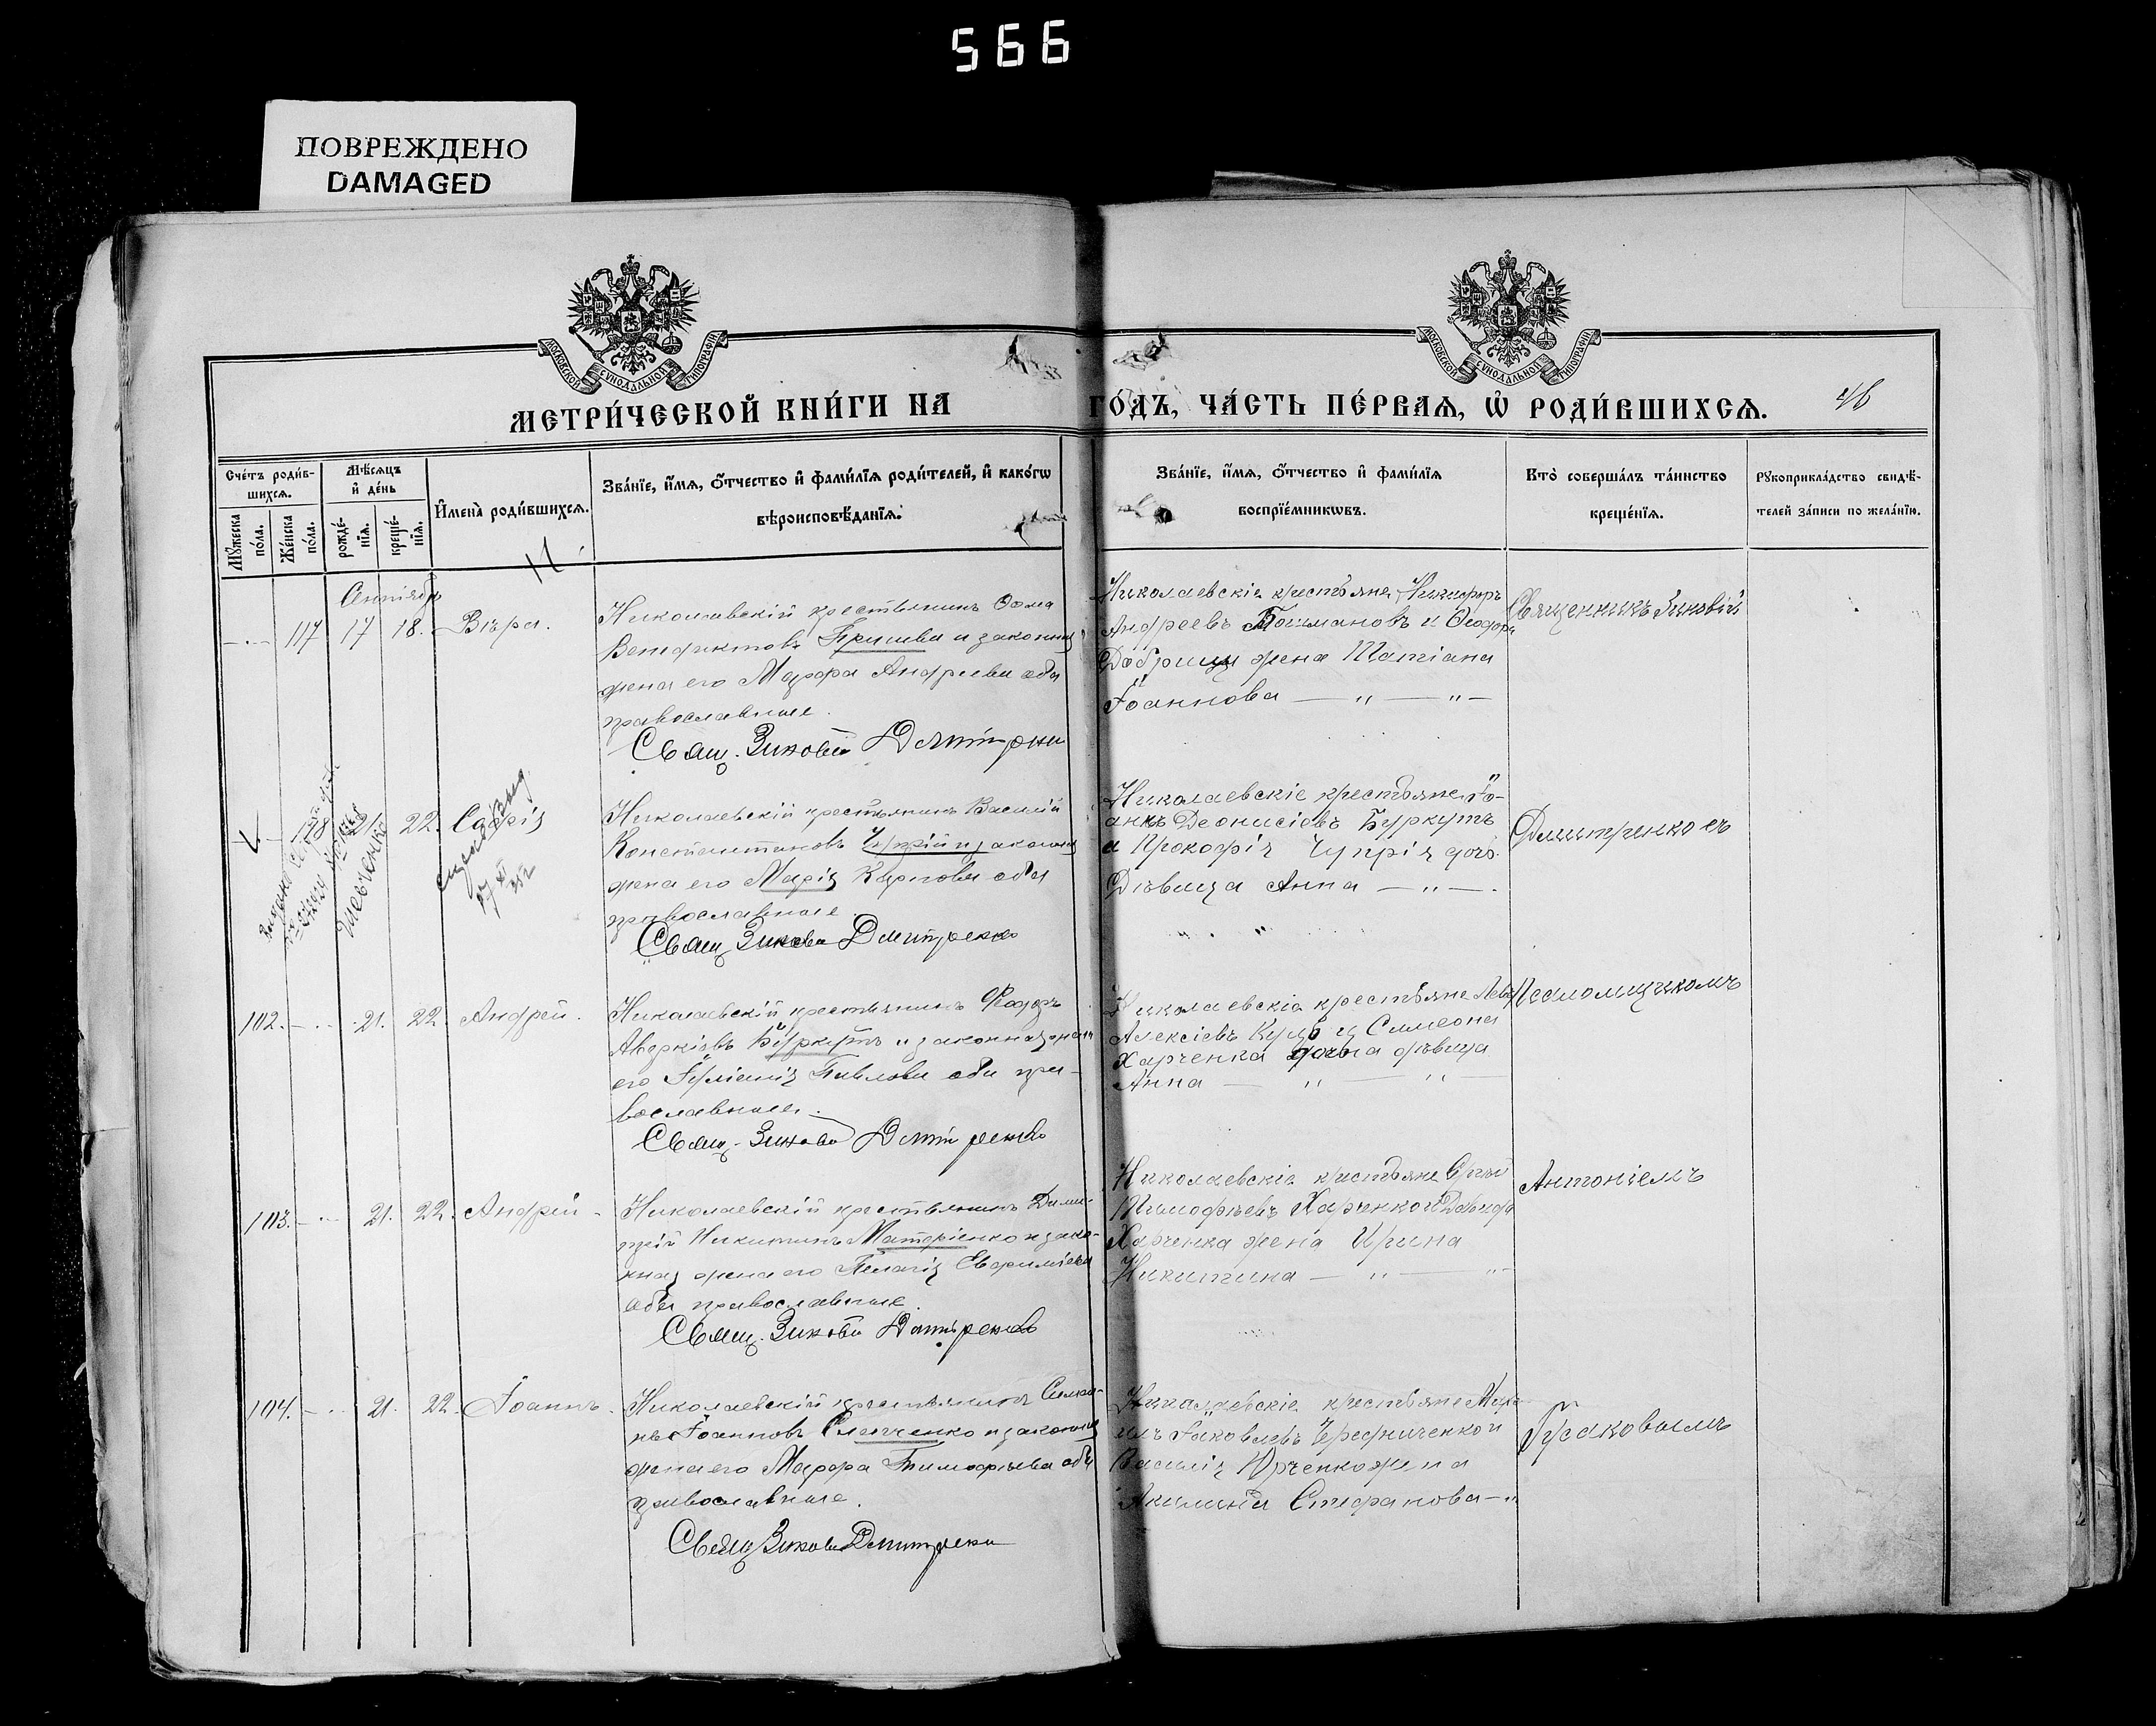 566
ПОВРЕЖДЕНО
DAMAGED
МОСКОВСКОЙ СѴНОДАЛЬНОЙ ТИПОГРАФІИ
МОСКОВСКОЙ СѴНОДАЛЬНОЙ ТИПОГРАФІИ
МЕТРИ́ЧЕСКОЙ КНИ́ГИ НА
ГО́ДЪ, ЧА́СТЬ ПЕ́РВАѦ, Ѡ҆ РОДИ́ВШИХСѦ.
46
Сче́тъ роди́в-
шихсѧ.
Мѣ́сѧцъ
и҆ де́нь
И҆мена̀ роди́вшихсѧ.
Зва́нїе, и҆́мѧ, ѻ҆́тчество и҆ фами́лїѧ роди́телей, и҆ како́гѡ
вѣроисповѣ́данїѧ.
Зва́нїе, и҆́мѧ, ѻ҆́тчество и҆ фами́лїѧ
воспрїе́мникѡвъ.
Кто̀ соверша́лъ та́инство
креще́нїѧ.
Рꙋкоприкла́дство свидѣ́-
телей за́писи по жела́нїю.
Мꙋ́жеска
по́ла.
Же́нска
по́ла.
рожде́-
нїѧ.
креще́-
нїѧ.
Сентябр
117 17 18. Вѣра.
Николаевскій крестьянинъ Ѳома
Венедиктовъ и законная
жена его Марфа Андреева оба
православные.
Свящ. Зиновій Дмитренко
Николаевскіе крестьяне Никифоръ
Андреевъ и Ѳеодора
жена Татіана
Іоаннова — " — " —
Священникъ Зиновій
118 21. 22. Софія
Николаевскій крестьянинъ Василій
Константиновъ Чупрій и законная
жена его Марія Карпова оба
православные
Свящ. Зиновій Дмитренко
Николаевскіе крестьяне Іо-
аннъ Діонисіевъ Буркутъ
и Прокофія Чупрія дочь
Дѣвица Анна — " — .
Дмитренко съ
102. 21. 22. Андрей.
Николаевскій крестьянинъ Ѳеодоръ
Аверкіевъ Буркутъ и законная жена
его Іуліанія Павлова оба пра-
вославные.
Свящ. Зиновій Дмитренко
Николаевскіе крестьяне
Алексіевъ и Симеона
Харченка дочь дѣвица
Анна — " — " —
Псаломщикомъ
103. 21. 22. Андрей
Николаевскій крестьянинъ Дими-
трій Никитинъ Матвіенко и зако-
нная жена его Пелагія Евфиміева
оба православные.
Свящ. Зиновій Дмитренко
Николаевскіе крестьяне
Тимофѣевъ Харченко и
Харченка жена Ирина
Никитина — " — " —
Антоніемъ
104. 21. 22. Іоаннъ.
Николаевскій крестьянинъ Симео-
нъ Іоанновъ и законная
жена его Марфа Тимофѣева оба
православные.
Свящ Зиновій Дмитренко
Николаевскіе крестьяне Миха-
илъ Іаковлевъ Чередниченко и
Василія Юрченко жена
Акилина Стефанова — "
Гусаковымъ